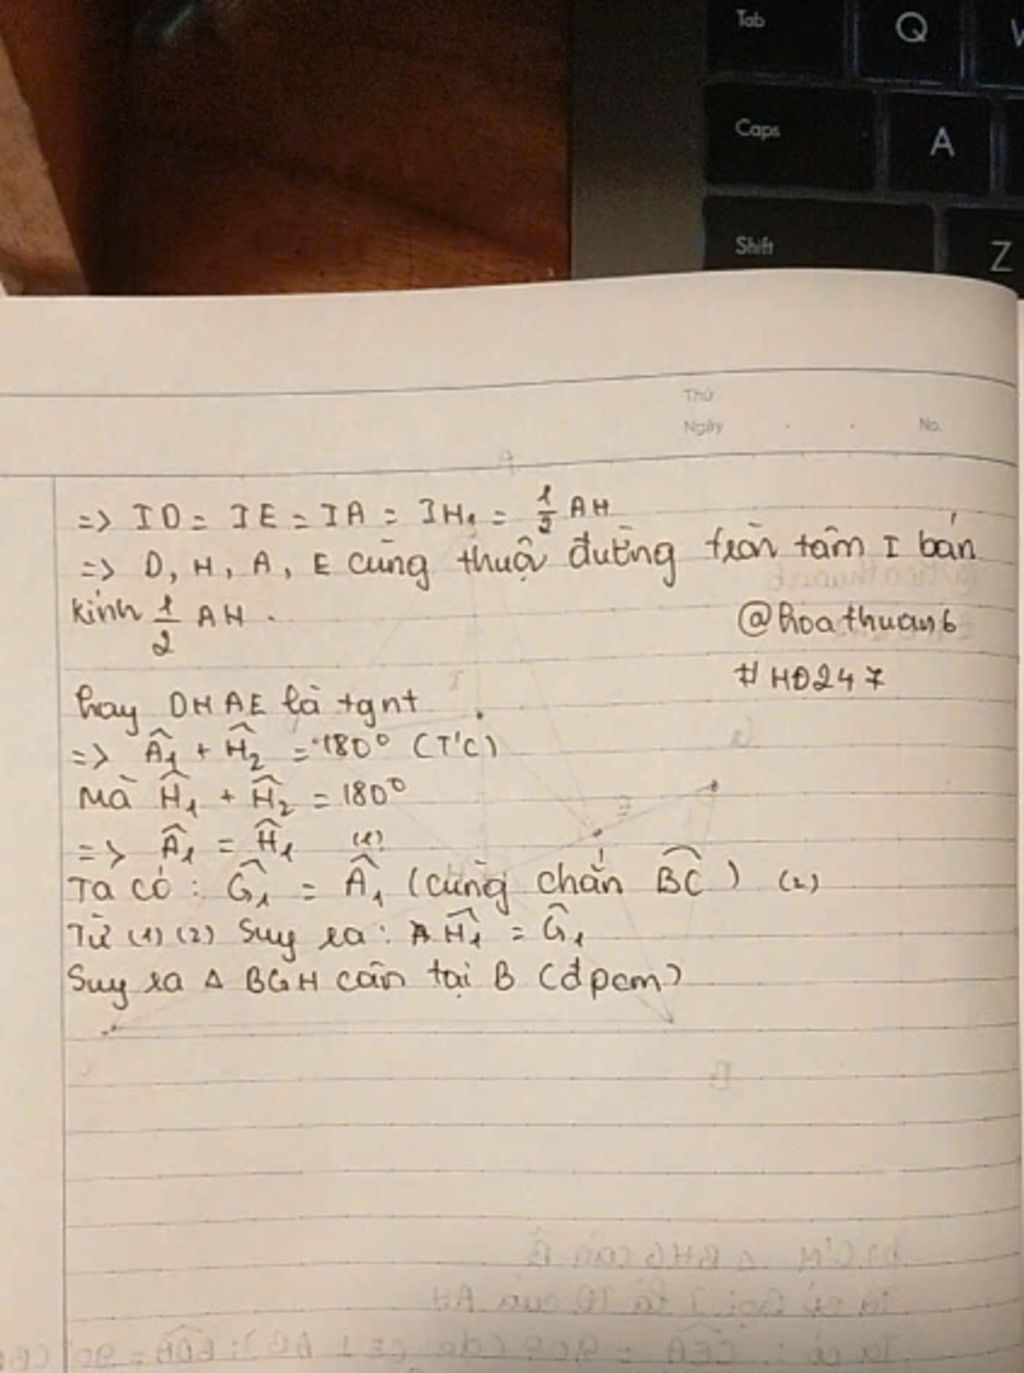 Tab
Q
Caps
A
Shift
Z
Thứ
Ngày
No.
=> ID = IE = IA = IH₁ = 1/2 AH
=> D, H, A, E cùng thuộc đường tròn tâm I bán
kính 1/2 AH .
@hoathuan6
#HĐ247
hay DHAE là tgnt
=> Â₁ + Ĥ₂ = 180° (T/C)
Mà Ĥ₁ + Ĥ₂ = 180°
=> Â₁ = Ĥ₁ (1)
Ta có : Ĝ₁ = Â₁ (cùng chắn BC) (2)
Từ (1) (2) Suy ra : Ĥ₁ = Ĝ₁
Suy ra Δ BGH cân tại B (đpcm)